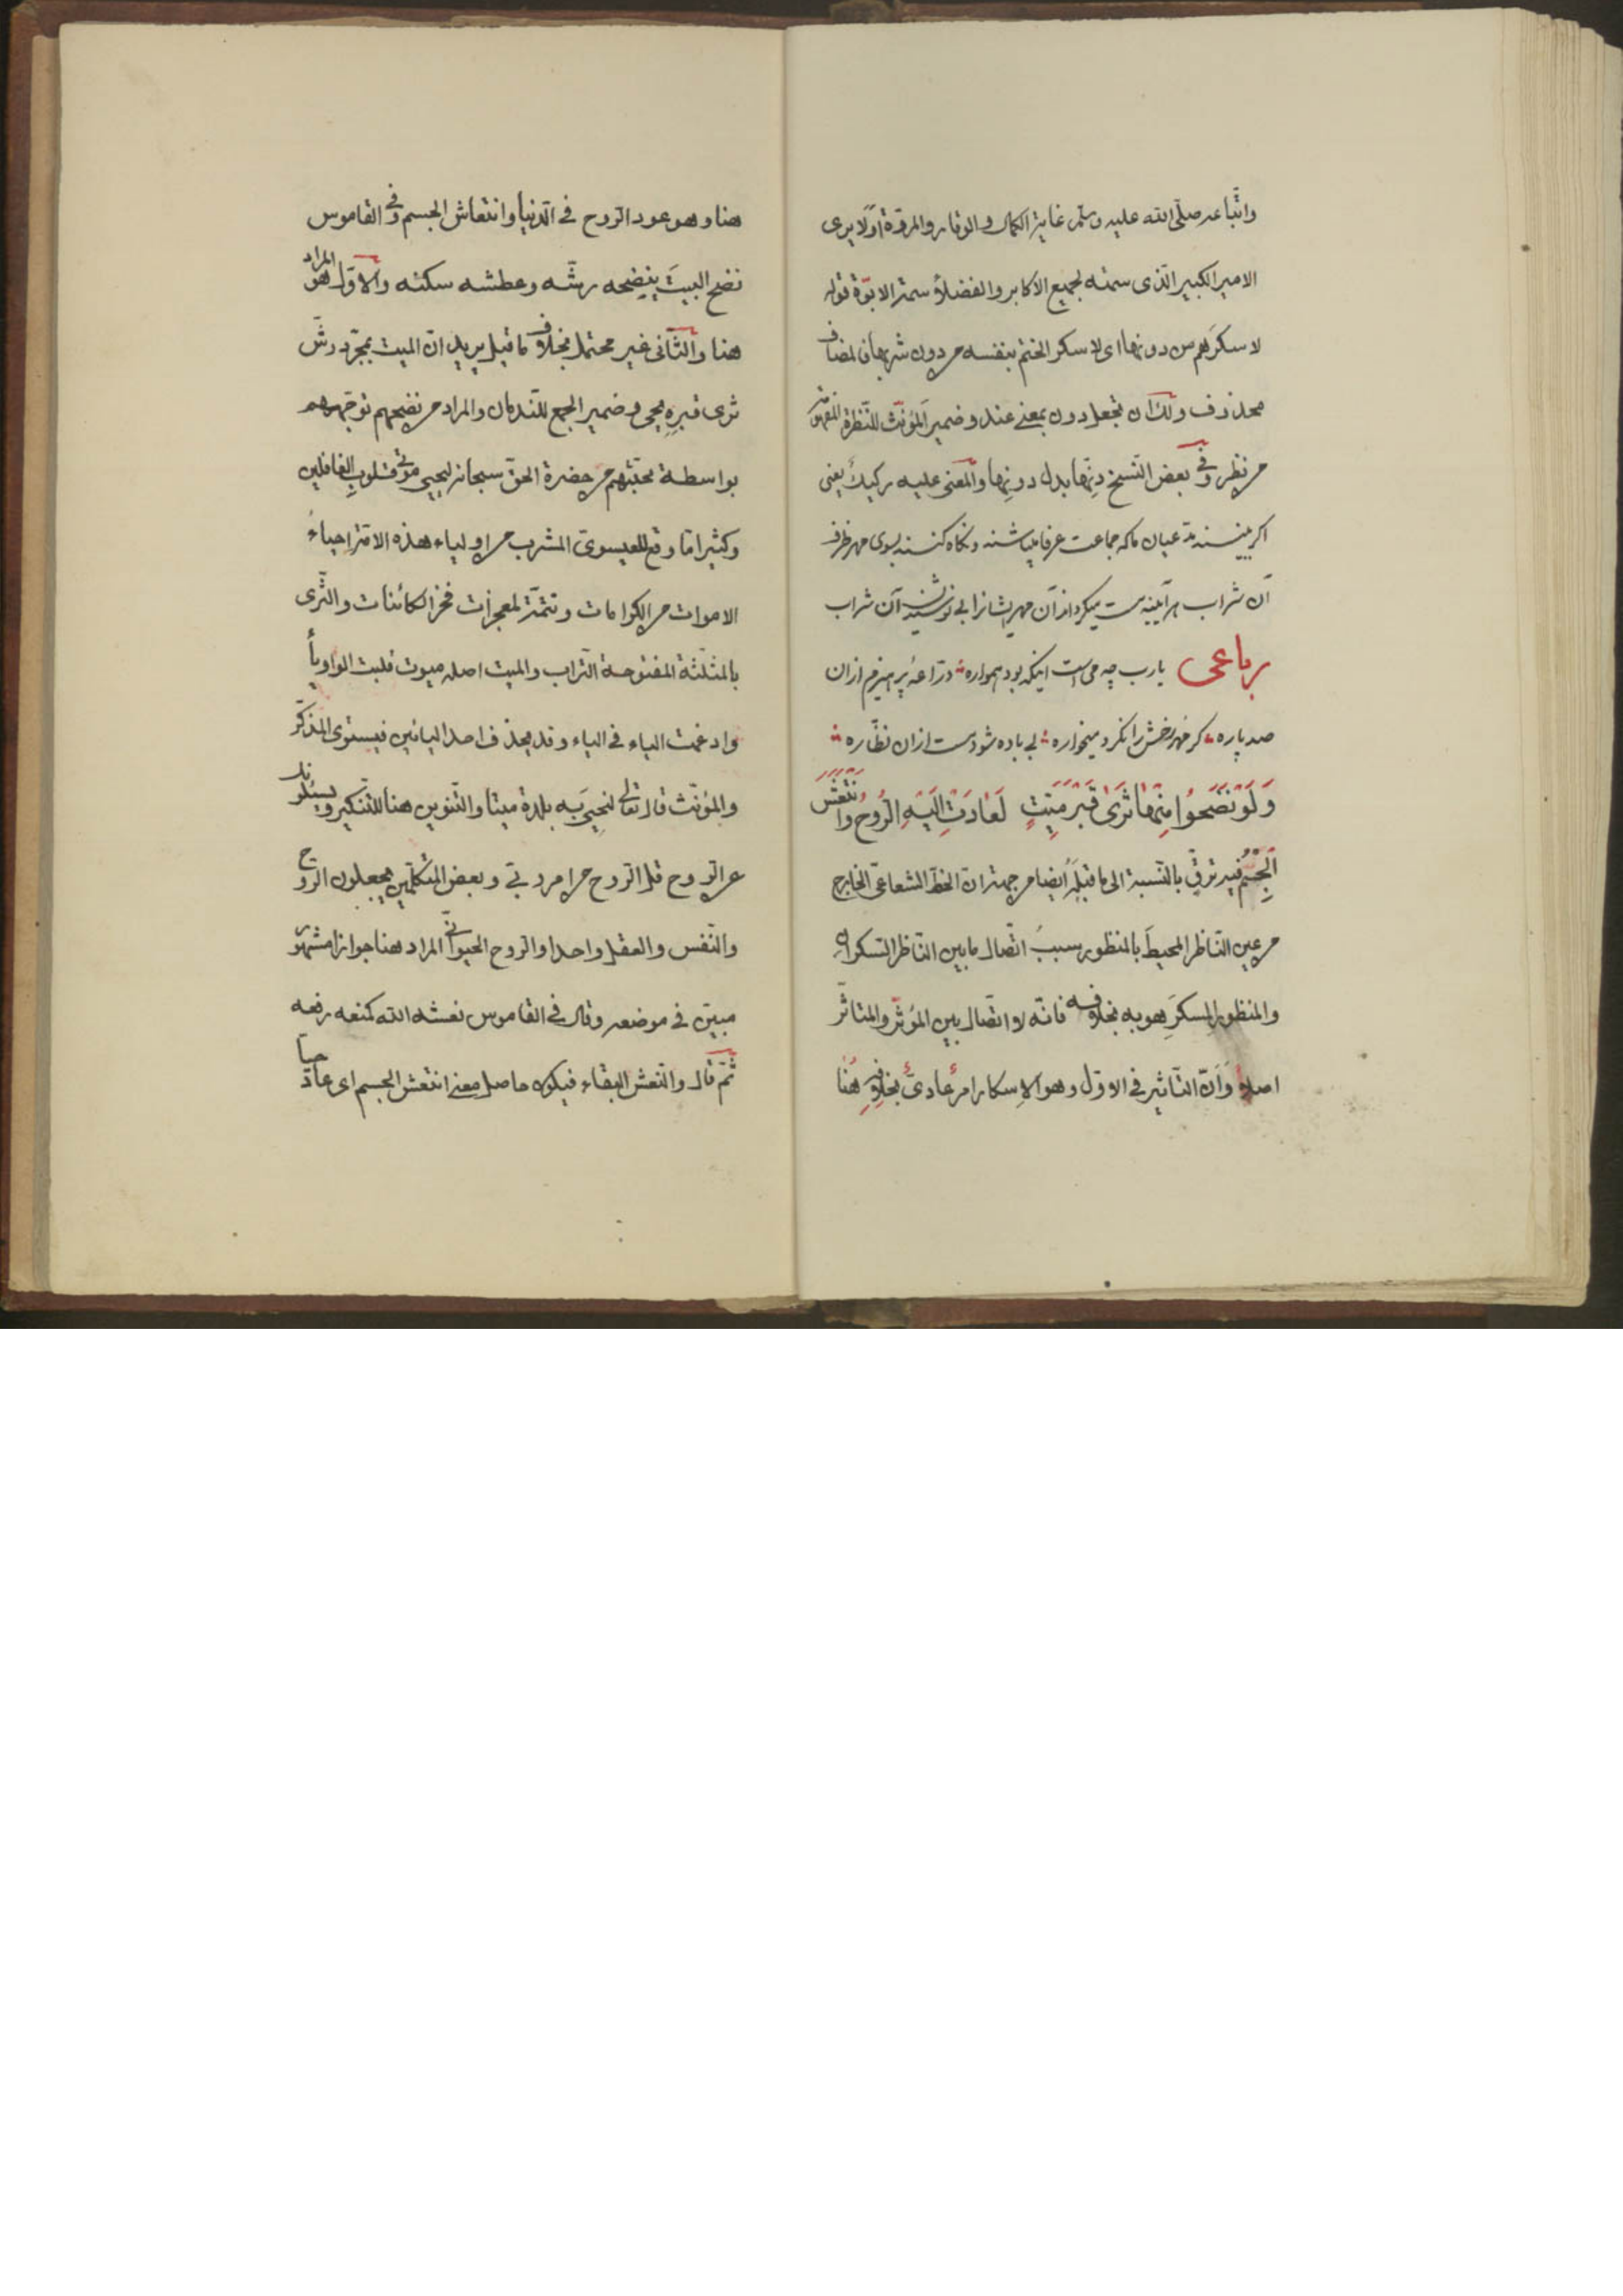 واتباعه صلى الله عليه وسلم غاية الكمال والوقار والمروة اولا يرى
الامير الكبير الذى سمته لجميع الاكابر والفضلاء سمة الابوة قوله
لاسكرهم من دونها اى لاسكر الختم بنفسه من دون شربها فالمضاف
محذوف ولك ان تجعل دون بمعنى عند وضمير المؤنث للنظرة المفهومة
من نظر وفى بعض النسخ دنها بدل دونها والمعنى عليه ركيك يعنى
اكر ببينند مدعيان ما كه جماعت عرفا ميباشند ونكاه كنند بسوى مهر ظرف
آن شراب هر آيينه مست ميكرداند آن مهر ايشانرا بى نوشيدن آن شراب
رباعى يارب چه مى است اينكه بود همواره در آعه پرهيزم ازان
صد پاره كر مهر خمش را نكرد ميخواره بى باده شود مست ازان نظاره
وَلَوْ نَضَحُوا مِنْهَا ثَرَىٰ قَبْرِ مَيِّتٍ لَعَادَتْ اِلَيْهِ الرُّوحُ وَانْتَعَشَ
الْجِسْمُ فيه ترق بالنسبة الى ما قبله ايضا من جهة ان الخط الشعاعى الخارج
من عين الناظر المحيط بالمنظور سبب اتصال ما بين الناظر السكران
والمنظور المسكر هو به بخلاف فيه فانه لا اتصال بين المؤثر والمتاثر
اصلا وان التاثير فى الاول وهو الاسكار امر عادى بخلافه هنا
هنا وهو عود الروح فى الدنيا وانتعاش الجسم وفى القاموس
نضح البيت ينضحه رشه وعطشه سكنه والاول هو المراد
هنا والثانى غير محتمل بخلاف ما قيل يريد ان الميت بمجرد رش
ثرى قبره يحيى وضمير الجمع للندمان والمراد من نضحهم توجههم
بواسطة محبتهم من حضرة الحق سبحانه ليحيى موتى قلوب الغافلين
وكثيرا ما وقع للعيسوى المشرب من اولياء هذه الامة احياء
الاموات من الكرامات وتتمة لمعجزات فخر الكائنات والثرى
بالمثلثة المفتوحة التراب والميت اصله ميوت قلبت الواو ياء
وادغمت الياء فى الياء وقد يحذف احد اليائين فيستوى المذكر
والمؤنث قال تعالى لنحيى به بلدة ميتا والتنوين هنا للتنكير ويسئلونك
عن الروح قل الروح من امر ربى وبعض المتكلمين يجعلون الروح
والنفس والعقل واحدا والروح الحيوانى المراد هنا جوازا مشهور
مبين فى موضعه وقال فى القاموس نعشه الله كمنعه رفعه
ثم قال والنعش البقاء فيكون حاصل معنى انتعش الجسم اى عاد حيا